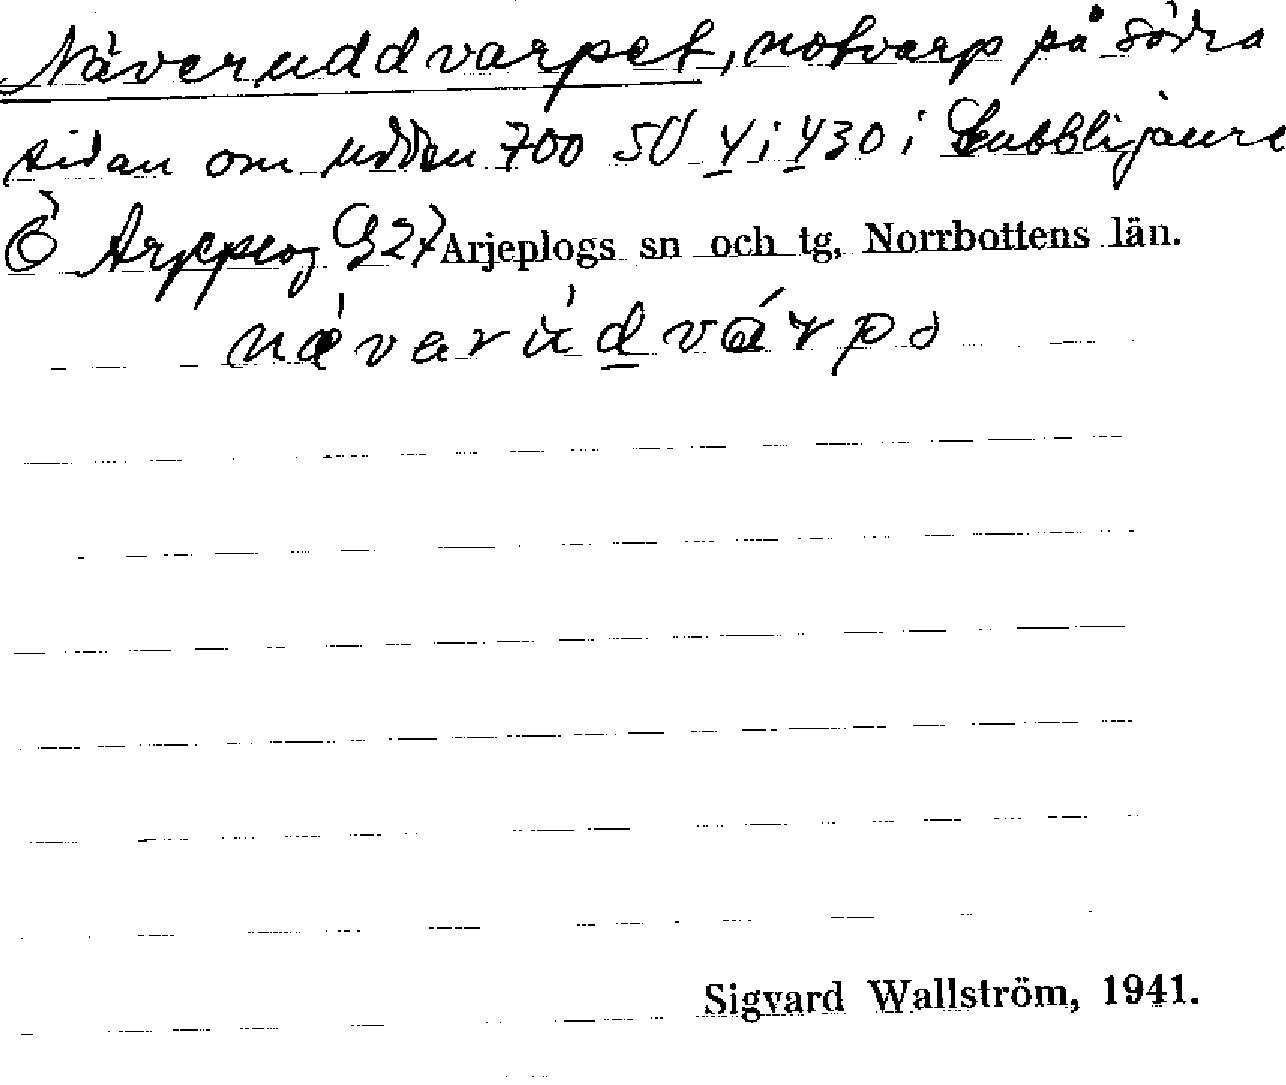 Näveruddvarpet, notvarp på södra
sidan om udden 700 SV y i 430 i Labbligjaure
Ö Arjeplog G27 Arjeplogs sn och tg, Norrbottens län.
návarúdvárpə
Sigvard Wallström, 1941.